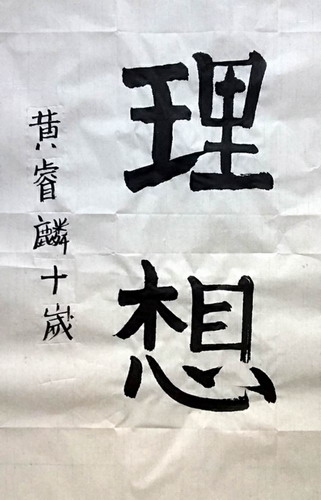 理想
黄睿麟十歲